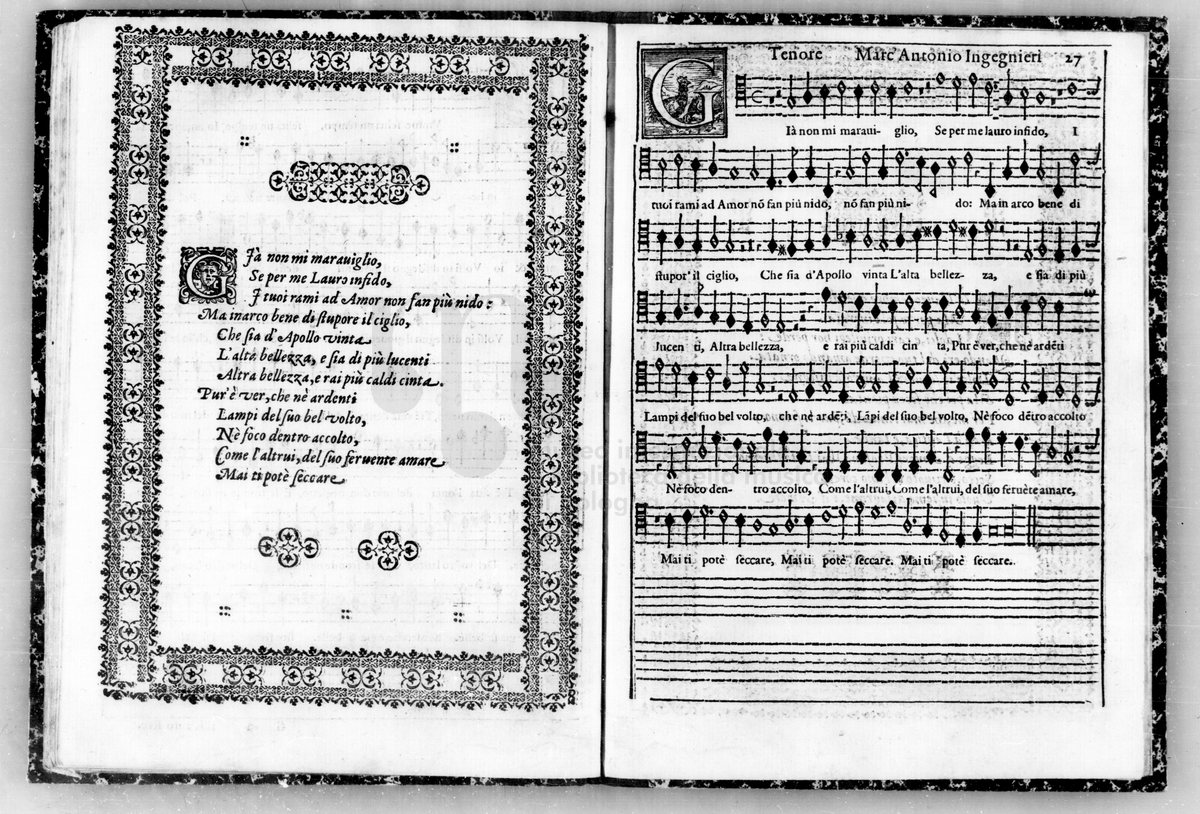 Già non mi marauiglio,
Se per me Lauro infido,
I tuoi rami ad Amor non fan più nido:
Ma inarco bene di stupore il ciglio,
Che sia d'Apollo vinta
L'alta bellezza, e sia di più lucenti
Altra bellezza, e rai più caldi cinta.
Pur'è ver, che nè ardenti
Lampi del suo bel volto,
Nè foco dentro accolto,
Come l'altrui, del suo feruente amare
Mai ti potè seccare.
Tenore Marc' Antonio Ingegnieri 27
GIà non mi maraui- glio, Se per me lauro infido, I
tuoi rami ad Amor nõ fan più nido, nõ fan più ni- do: Ma in arco bene di
stupor' il ciglio, Che sia d'Apollo vinta L'alta bellez- za, e sia di più
lucen- ti, Altra bellezza, e rai più caldi cin- ta, Pur è ver, che nè ardẽti
Lampi del suo bel volto, che nè ardẽti, Lãpi del suo bel volto, Nè foco dẽtro accolto
Nè foco den- tro accolto, Come l'altrui, Come l'altrui, del suo feruẽte amare,
Mai ti potè seccare, Mai ti potè seccare. Mai ti potè seccare.